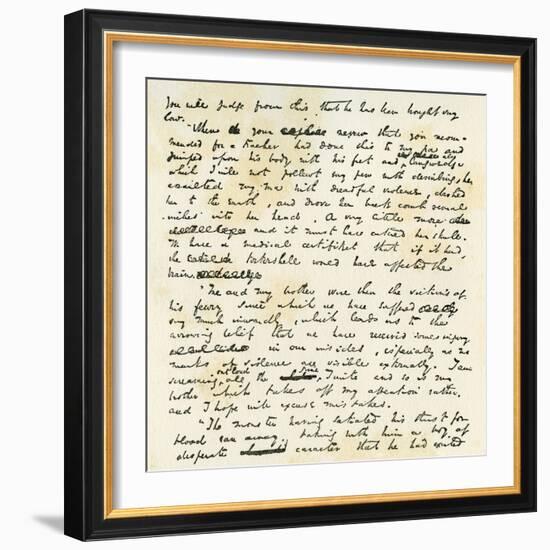 You will judge from this that he has been brought very
low.
"When your nevew that you recom-
mended for a teacher had done this to my pa and
jumped upon his body with his feet and also langwedge
which I will not pollewt my pen with describing, he
my ma with dreadful violence, dashed
her to the earth, and drove her back comb several
inches into her head. A very little more
and it must have entered her skull.
We have a medical certifiket that if it had,
the tortershell would have affected the
brain.
"Me and my brother were then the victims of
his feury since which we have suffered
very much inwardly, which leads us to the
arrowing belief that we have received some injury
in our insides, especially as no
marks of violence are visible externally. I am
screaming out loud all the time I write and so is my
brother which takes off my attention rather,
and I hope will excuse mistakes.
"The monster having satiated his thirst for
blood ran away, taking with him a boy of
desperate caracter that he had excited